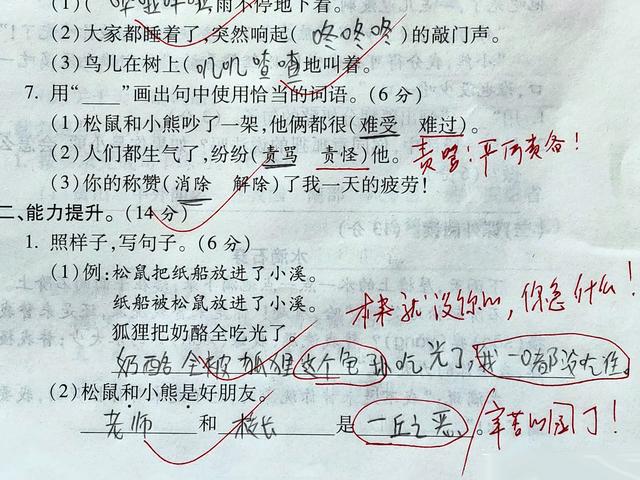 (1)(哗啦哗啦)雨不停地下着。
(2)大家都睡着了,突然响起(咚咚咚)的敲门声。
(3)鸟儿在树上(叽叽喳喳)地叫着。
7. 用“____”画出句中使用恰当的词语。(6分)
(1)松鼠和小熊吵了一架,他俩都很(难受 难过)。
(2)人们都生气了,纷纷(责骂 责怪)他。责骂:严厉责备!
(3)你的称赞(消除 解除)了我一天的疲劳!
二、能力提升。(14分)
1. 照样子,写句子。(6分)
(1)例:松鼠把纸船放进了小溪。
纸船被松鼠放进了小溪。
本来就没你的,你急什么!
狐狸把奶酪全吃光了。
奶酪全被狐狸这个龟孙吃光了,我一口都没吃住。
(2)松鼠和小熊是好朋友。
老师 和 校长 是 一丘之恶。辛苦的园丁!